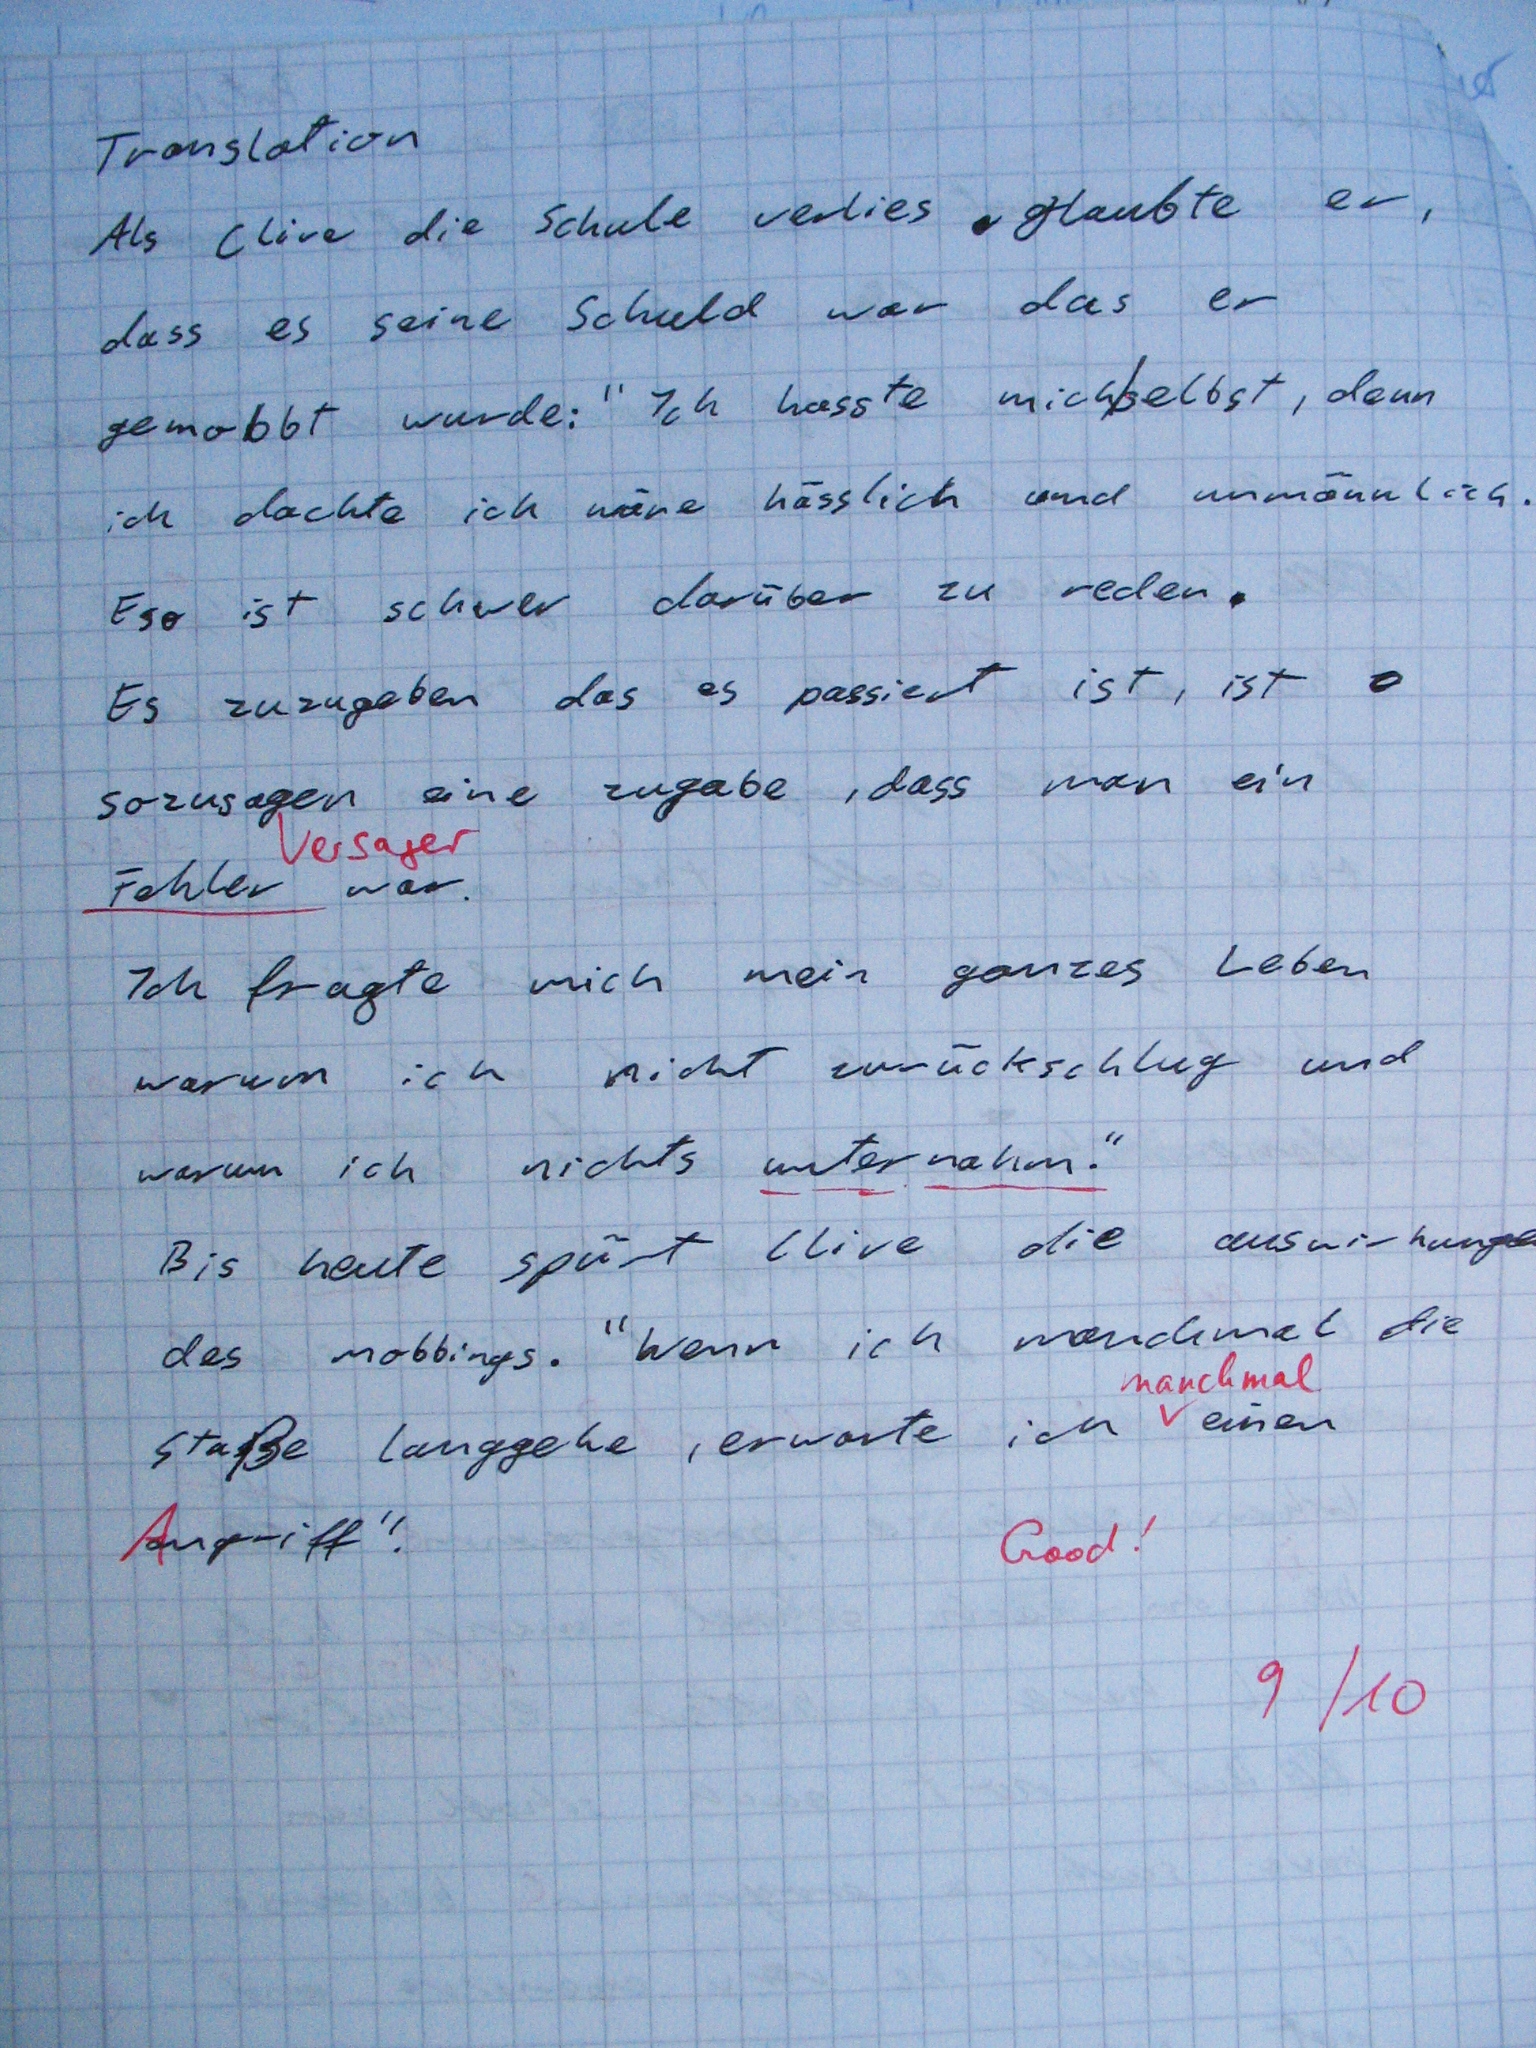 Translation
Als Clive die Schule verlies glaubte er,
dass es seine Schuld war das er
gemobbt wurde: "Ich hasste mich selbst, denn
ich dachte ich wäre hässlich und unmännlich.
Es ist schwer darüber zu reden.
Es zuzugeben das es passiert ist, ist
sozusagen eine zugabe, dass man ein
Versager
Fehler war.
Ich fragte mich mein ganzes Leben
warum ich nicht zurückschlug und
warum ich nichts unternahm."
Bis heute spürt Clive die auswirkungen
des mobbings. "Wenn ich manchmal die
manchmal
Staße langgehe, erwarte ich einen
Angriff".
Good!
9/10